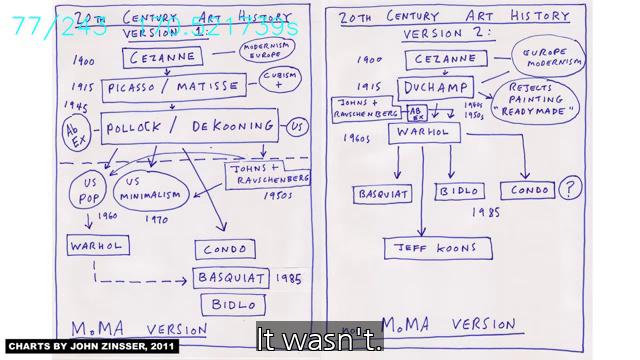 77/243 170.521739s
20TH CENTURY ART HISTORY
VERSION 1:
1900
CEZANNE
MODERNISM
EUROPE
1915
PICASSO / MATISSE
CUBISM
+
1945
Ab
Ex
POLLOCK / DEKOONING
US
US
POP
US
MINIMALISM
JOHNS +
RAUSCHENBERG
1950s
1960
1970
WARHOL
CONDO
BASQUIAT
1985
BIDLO
MoMA VERSION
20TH CENTURY ART HISTORY
VERSION 2:
1900
CEZANNE
EUROPE
MODERNISM
1915
DUCHAMP
REJECTS
PAINTING
"READYMADE"
JOHNS +
RAUSCHENBERG
AB
EX
1940s
1950s
1960s
WARHOL
BASQUIAT
BIDLO
CONDO
?
1985
JEFF KOONS
MoMA VERSION
CHARTS BY JOHN ZINSSER, 2011
It wasn't.